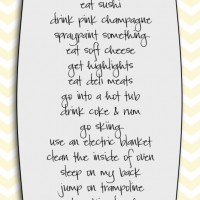 eat sushi
drink pink champagne
spraypaint something
eat soft cheese
get highlights
eat deli meats
go into a hot tub
drink coke & rum
go skiing
use an electric blanket
clean the inside of oven
sleep on my back
jump on trampoline